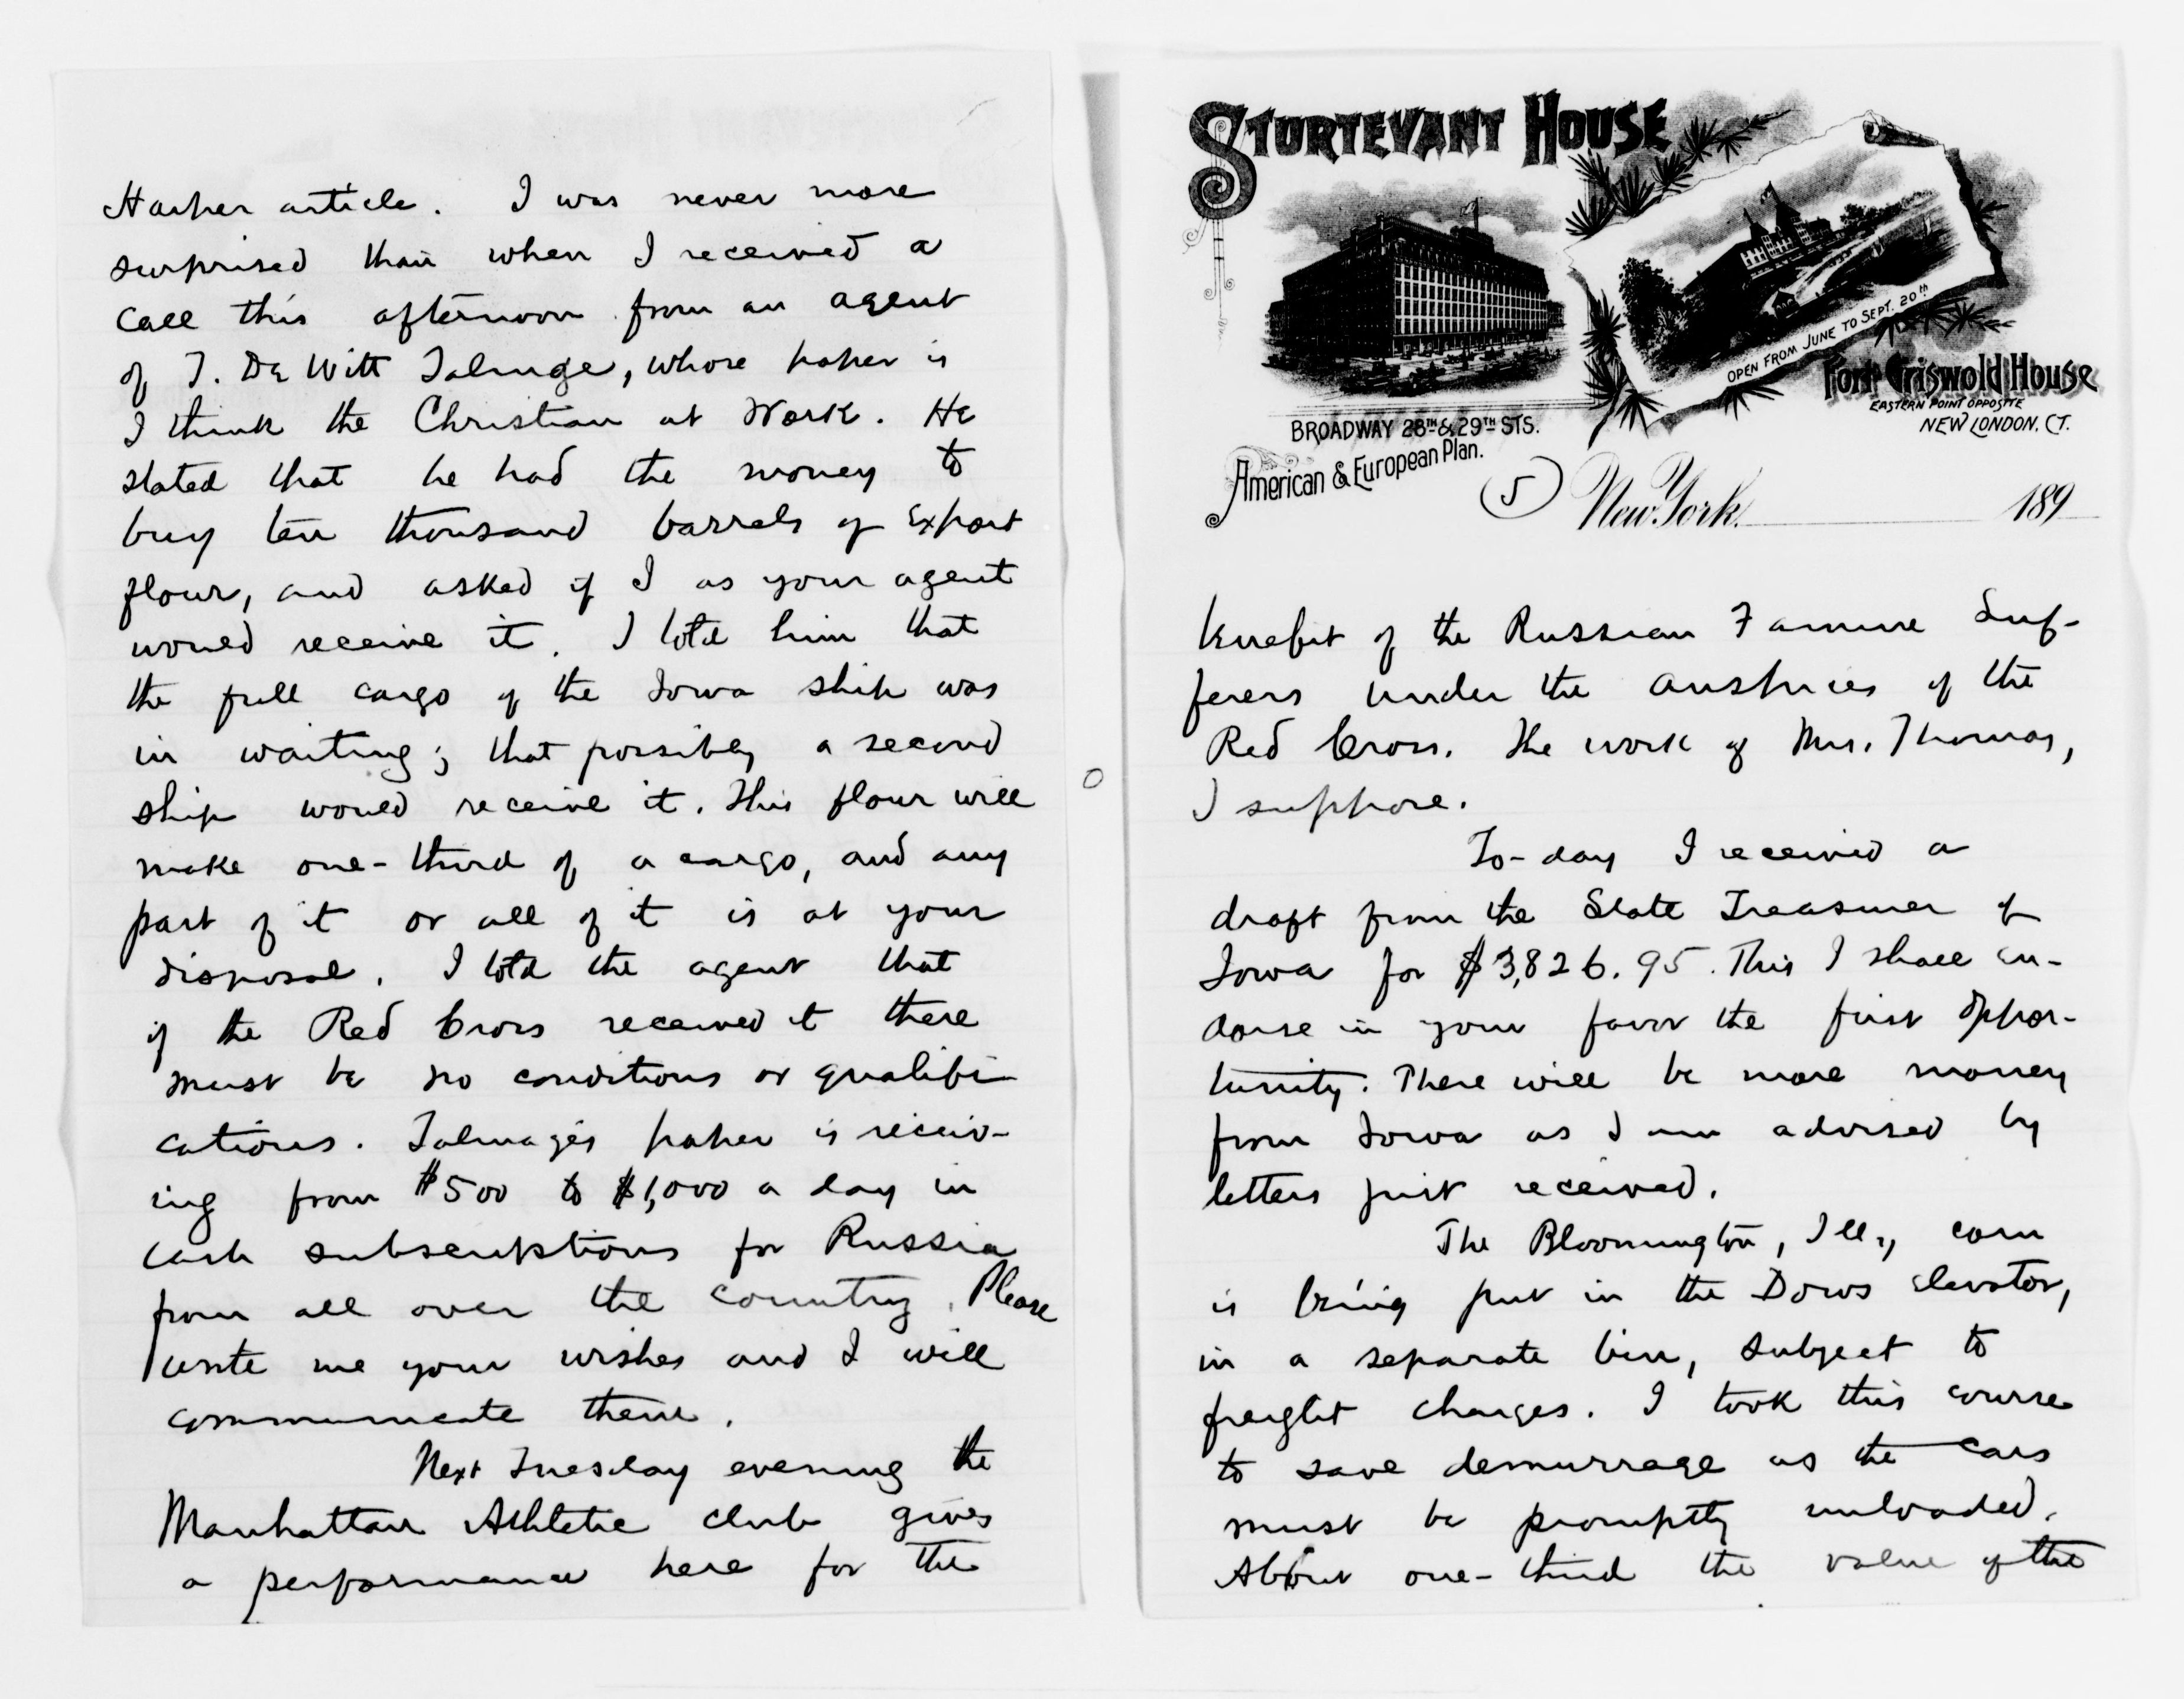 Harper article. I was never more
surprised than when I received a
call this afternoon from an agent
of T. De Witt Talmage, whose paper is
I think the Christian at Work. He
stated that he had the money to
buy ten thousand barrels of Export
flour, and asked if I as your agent
would receive it. I told him that
the full cargo of the Iowa ship was
in waiting; that possibly a second
ship would receive it. This flour will
make one-third of a cargo, and any
part of it or all of it is at your
disposal. I told the agent that
if the Red Cross received it there
must be no conditions or qualifi
cations. Talmage's paper is receiv-
ing from $500 to $1,000 a day in
cash subscriptions for Russia
from all over the country. Please
write me your wishes and I will
communicate them.
Next Tuesday evening the
Manhattan Athletic club gives
a performance here for the
STURTEVANT HOUSE
BROADWAY 28TH & 29TH STS.
American & European Plan.
OPEN FROM JUNE TO SEPT. 20th
Fort Griswold House
EASTERN POINT OPPOSITE
NEW LONDON, CT.
5 New York. 189
benefit of the Russian Famine Suf-
ferers under the auspices of the
Red Cross. The work of Mrs. Thomas,
I suppose.
To-day I received a
draft from the State Treasurer of
Iowa for $3,826.95. This I shall en-
dorse in your favor the first oppor-
tunity. There will be more money
from Iowa as I am advised by
letters just received.
The Bloomington, Ill., corn
is being put in the Dows Elevator,
in a separate bin, subject to
freight charges. I took this course
to save demurrage as the cars
must be promptly unloaded.
About one-third the value of the